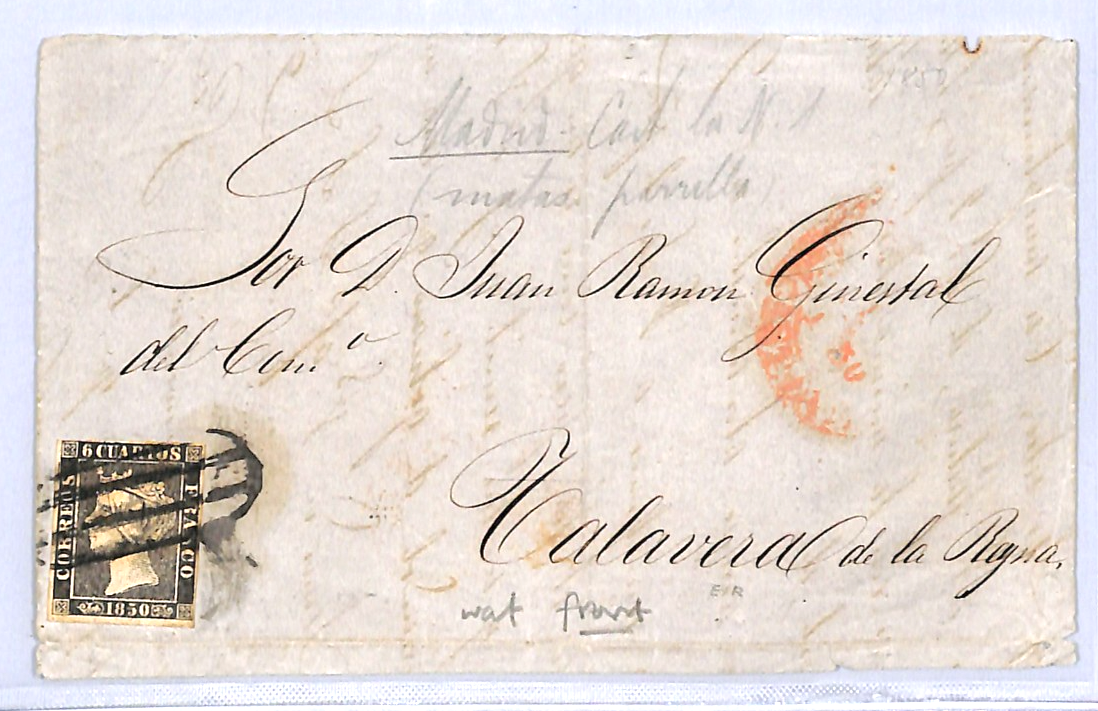 1850
Madrid. Cart la N. 1
(matas parrilla)
Sor D. Juan Ramon Ginestal
del Com.o
6 CUARTOS
CORREOS
FRANCO
1850
Talavera de la Reyna.
E.R
wat front